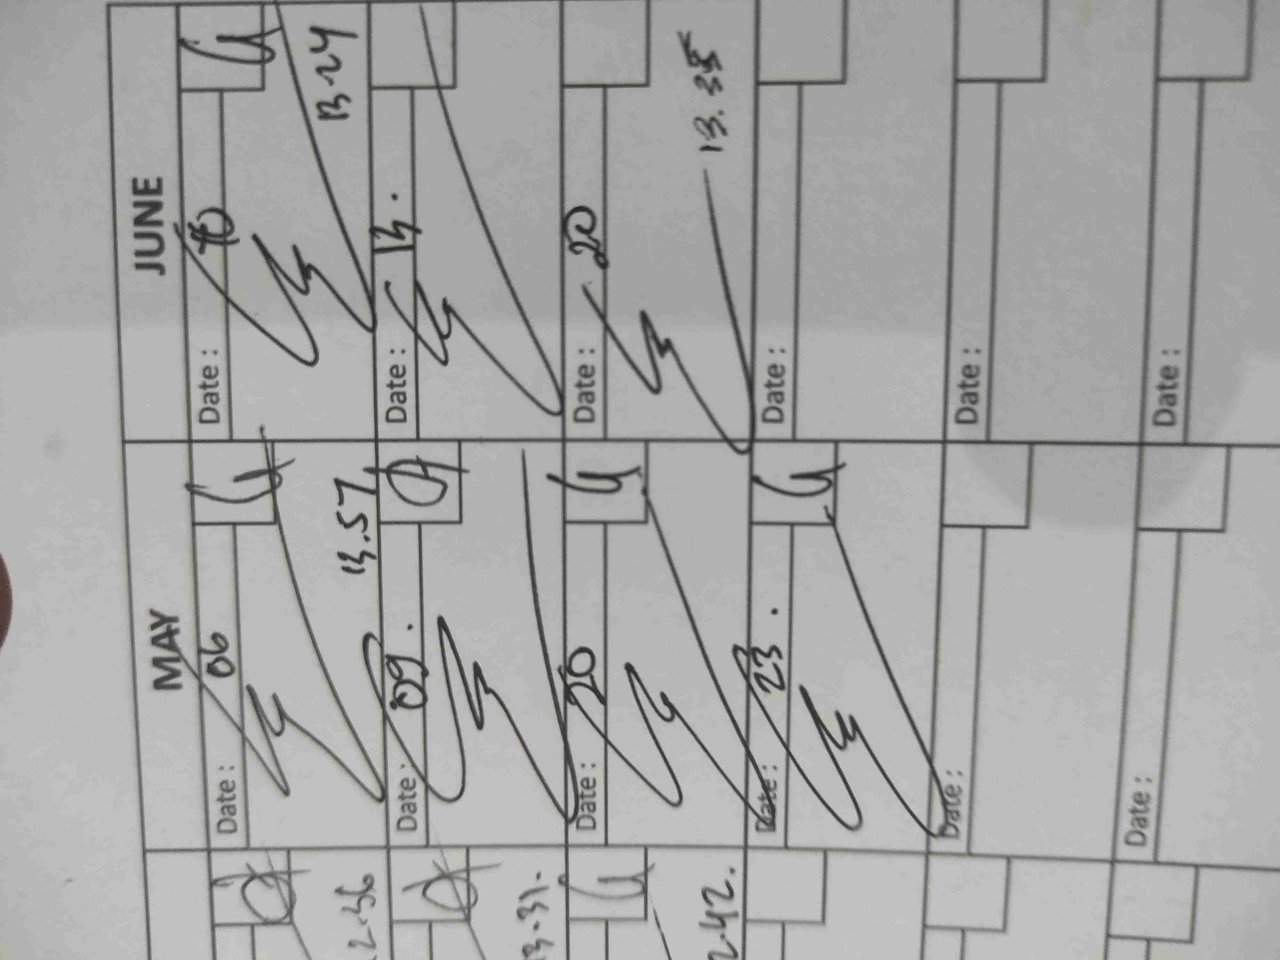 MAY JUNE
Date : 06 Date : 10
2.36 13.57 13.24
Date : 09. Date : 13.
13.31.
Date : 20 Date : 20
2.42. 13.35
Date : 23. Date :
Date : Date :
Date : Date :